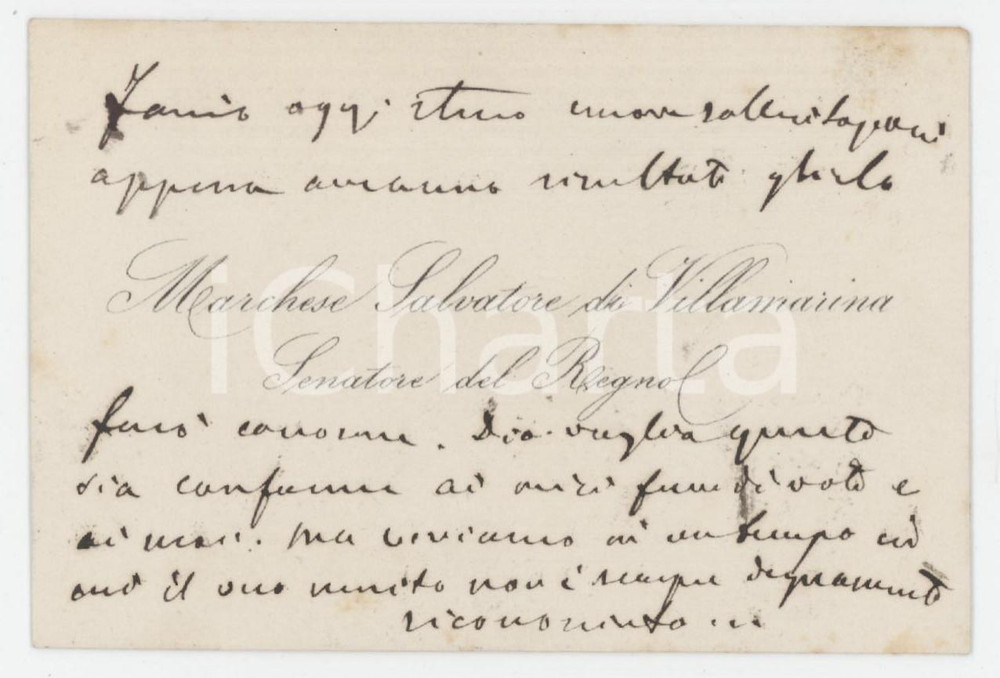 Farò oggi stesso nuove sollecitazioni
appena avranno risultati glielo
Marchese Salvatore di Villamarina
Senatore del Regno
iCharta
farò conoscere. Dio voglia questo
sia conforme ai miei fervidi voti e
ai suoi. Ma viviamo in un tempo in
cui il vero merito non è sempre degnamente
riconosciuto...